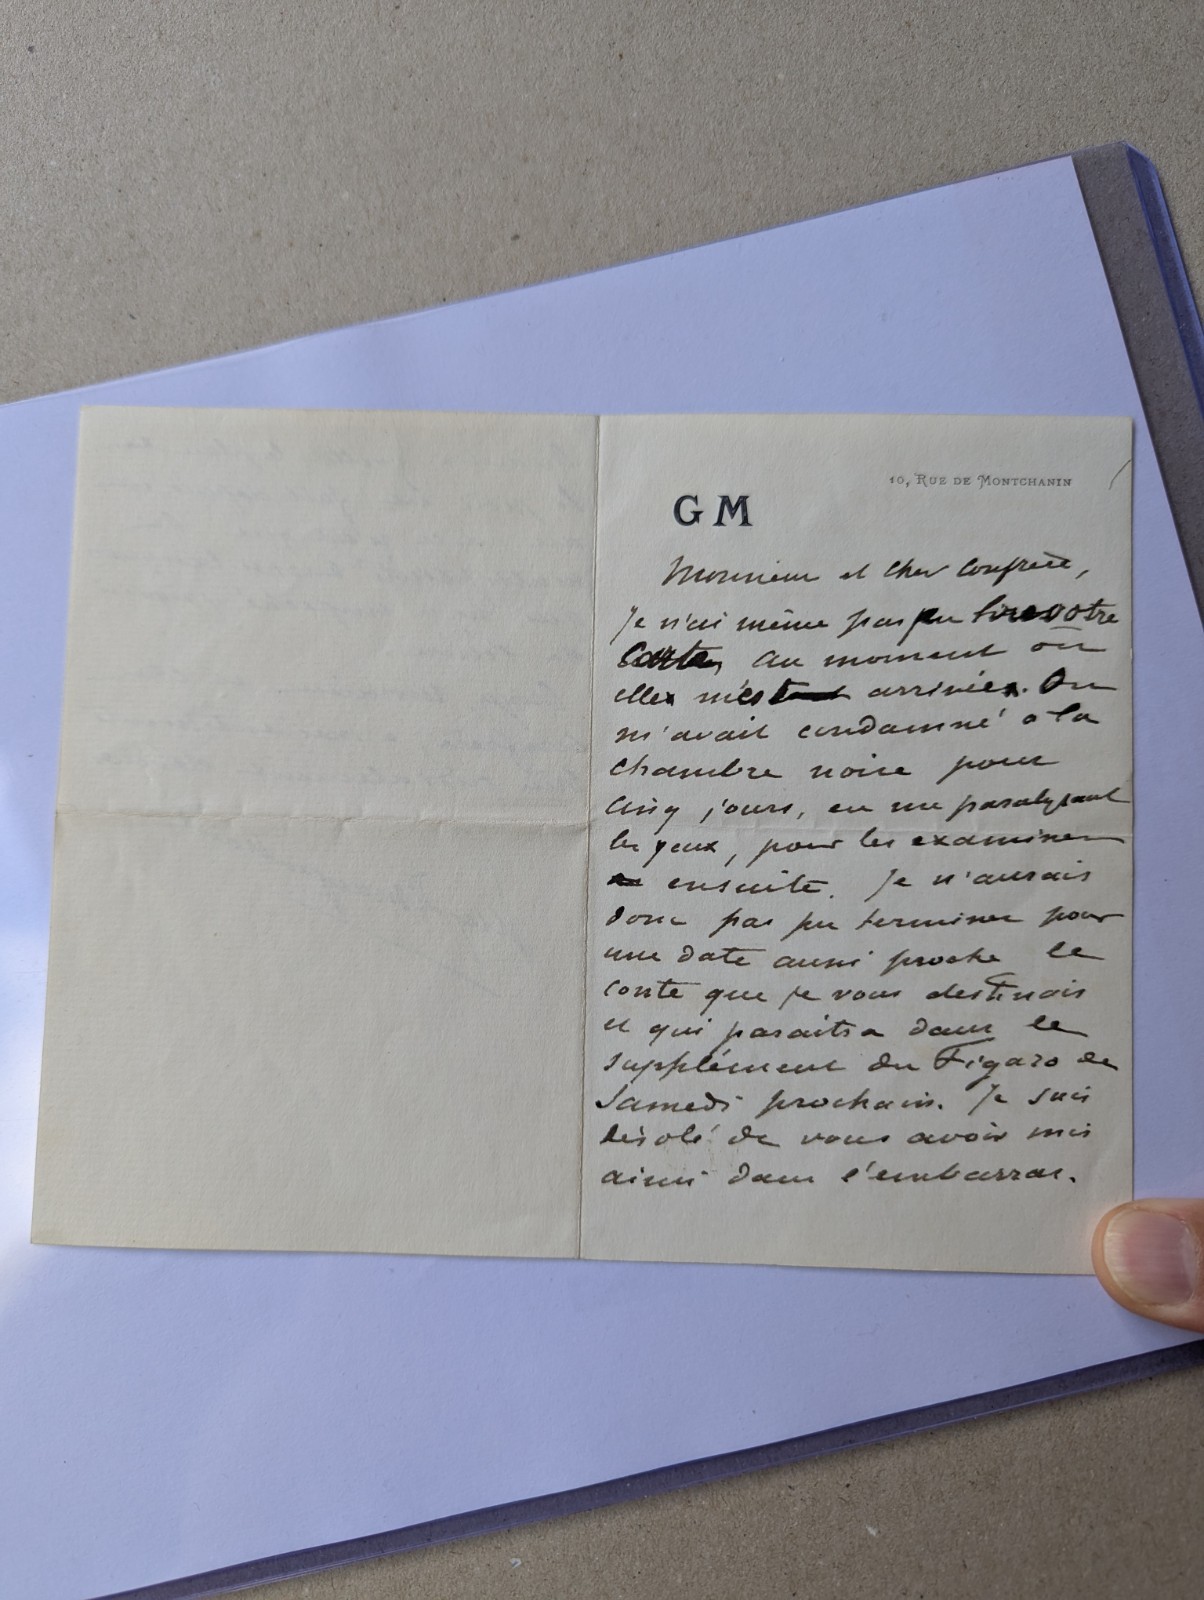 10, RUE DE MONTCHANIN
GM
Monsieur et cher confrère,
Je n'ai même pas pu lire votre
carte, au moment où
elle m'est arrivée. On
m'avait condamné à la
chambre noire pour
cinq jours, en me paralysant
les yeux, pour les examiner
ensuite. Je n'aurais
donc pas pu terminer pour
une date aussi proche le
conte que je vous destinais
et qui paraitra dans le
supplément du Figaro de
Samedi prochain. Je suis
désolé de vous avoir mis
ainsi dans l'embarras.